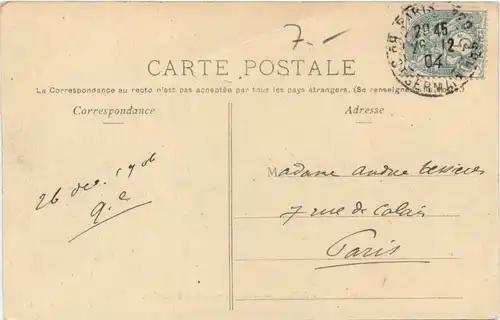 7.-
PARIS
20 45
26 12
04
CARTE POSTALE
La Correspondance au recto n'est pas acceptée par tous les pays étrangers. (Se renseigner
Correspondance
Adresse
26 dec. 1906
Madame André Tessier
7 rue de Calais
Paris